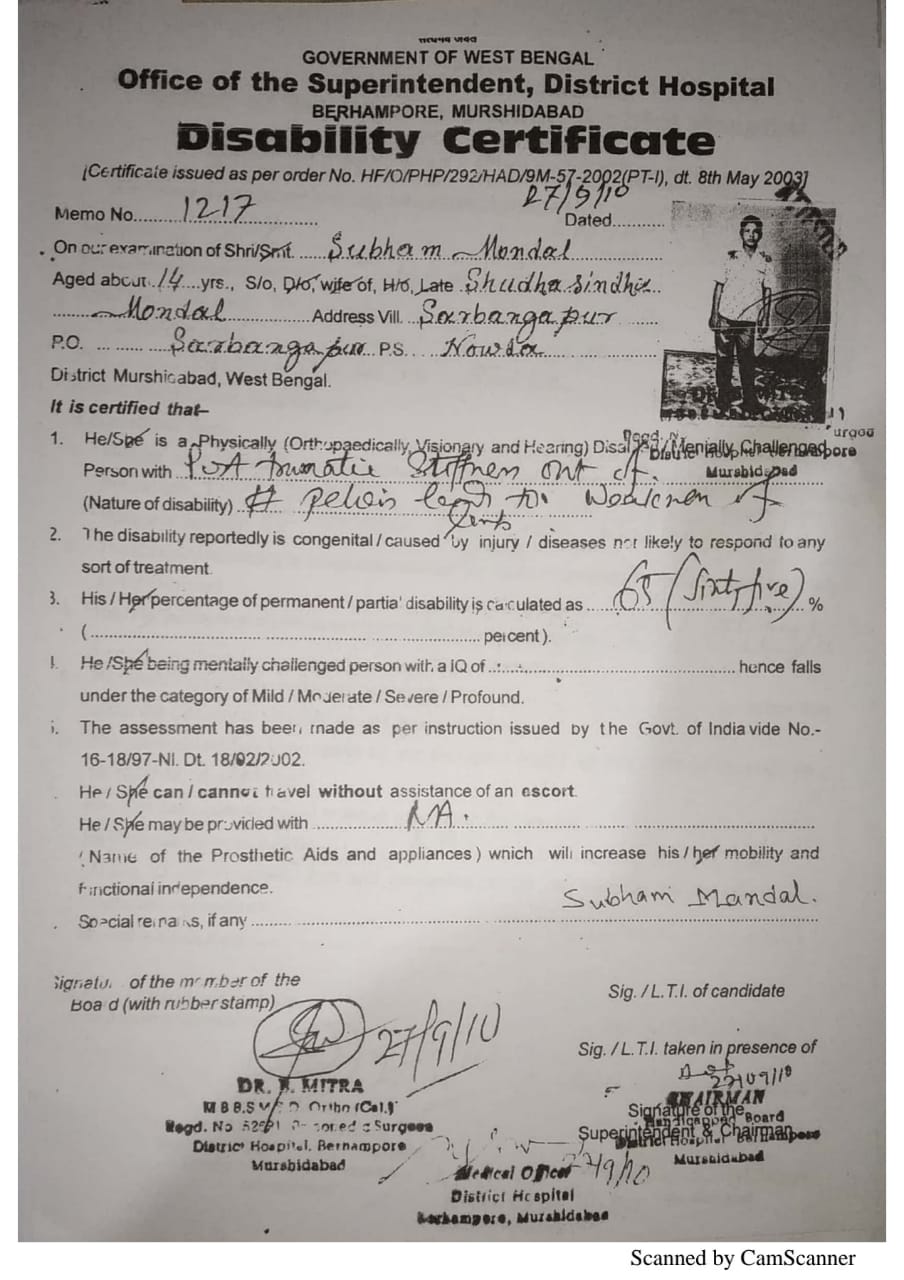 सत्यमेव जयते
GOVERNMENT OF WEST BENGAL
Office of the Superintendent, District Hospital
BERHAMPORE, MURSHIDABAD
Disability Certificate
[Certificate issued as per order No. HF/O/PHP/292/HAD/9M-57-2002(PT-I), dt. 8th May 2003]
Memo No. 1217 Dated 27/9/10
On our examination of Shri/Smt. Subham Mondal
Aged about 14 yrs., S/o, D/o, wife of, H/o, Late Shudhasindhu
Mondal Address Vill. Sarbangapur
P.O. Sarbangapur P.S. Nowda
District Murshidabad, West Bengal.
It is certified that–
1. He/She is a Physically (Orthopaedically, Visionary and Hearing) Disabled / Mentally Challenged
Person with Post traumatic Stiffness
(Nature of disability) # pelvis to weakness of
2. The disability reportedly is congenital / caused by injury / diseases not likely to respond to any
sort of treatment.
3. His / Her percentage of permanent / partial disability is calculated as 65 (Sixtyfive) %
( percent ).
He /She being mentally challenged person with a IQ of hence falls
under the category of Mild / Moderate / Severe / Profound.
The assessment has been made as per instruction issued by the Govt. of India vide No.-
16-18/97-NI. Dt. 18/02/2002.
He / She can / cannot travel without assistance of an escort.
He / She may be provided with NA.
(Name of the Prosthetic Aids and appliances) which will increase his / her mobility and
functional independence.
Subham Mandal.
Special remarks, if any
Signature of the member of the
Board (with rubber stamp)
Sig. / L.T.I. of candidate
27/9/10
Sig. / L.T.I. taken in presence of
DR. MITRA
CHAIRMAN
Signature of the
Handicapped Board
Superintendent & Chairman
District Hospital, Berhampore
Murshidabad
M.B.B.S Ortho (Cal.)
Regd. No Surgeon
District Hospital, Berhampore
Murshidabad
Medical Officer
District Hospital
Berhampore, Murshidabad
Scanned by CamScanner